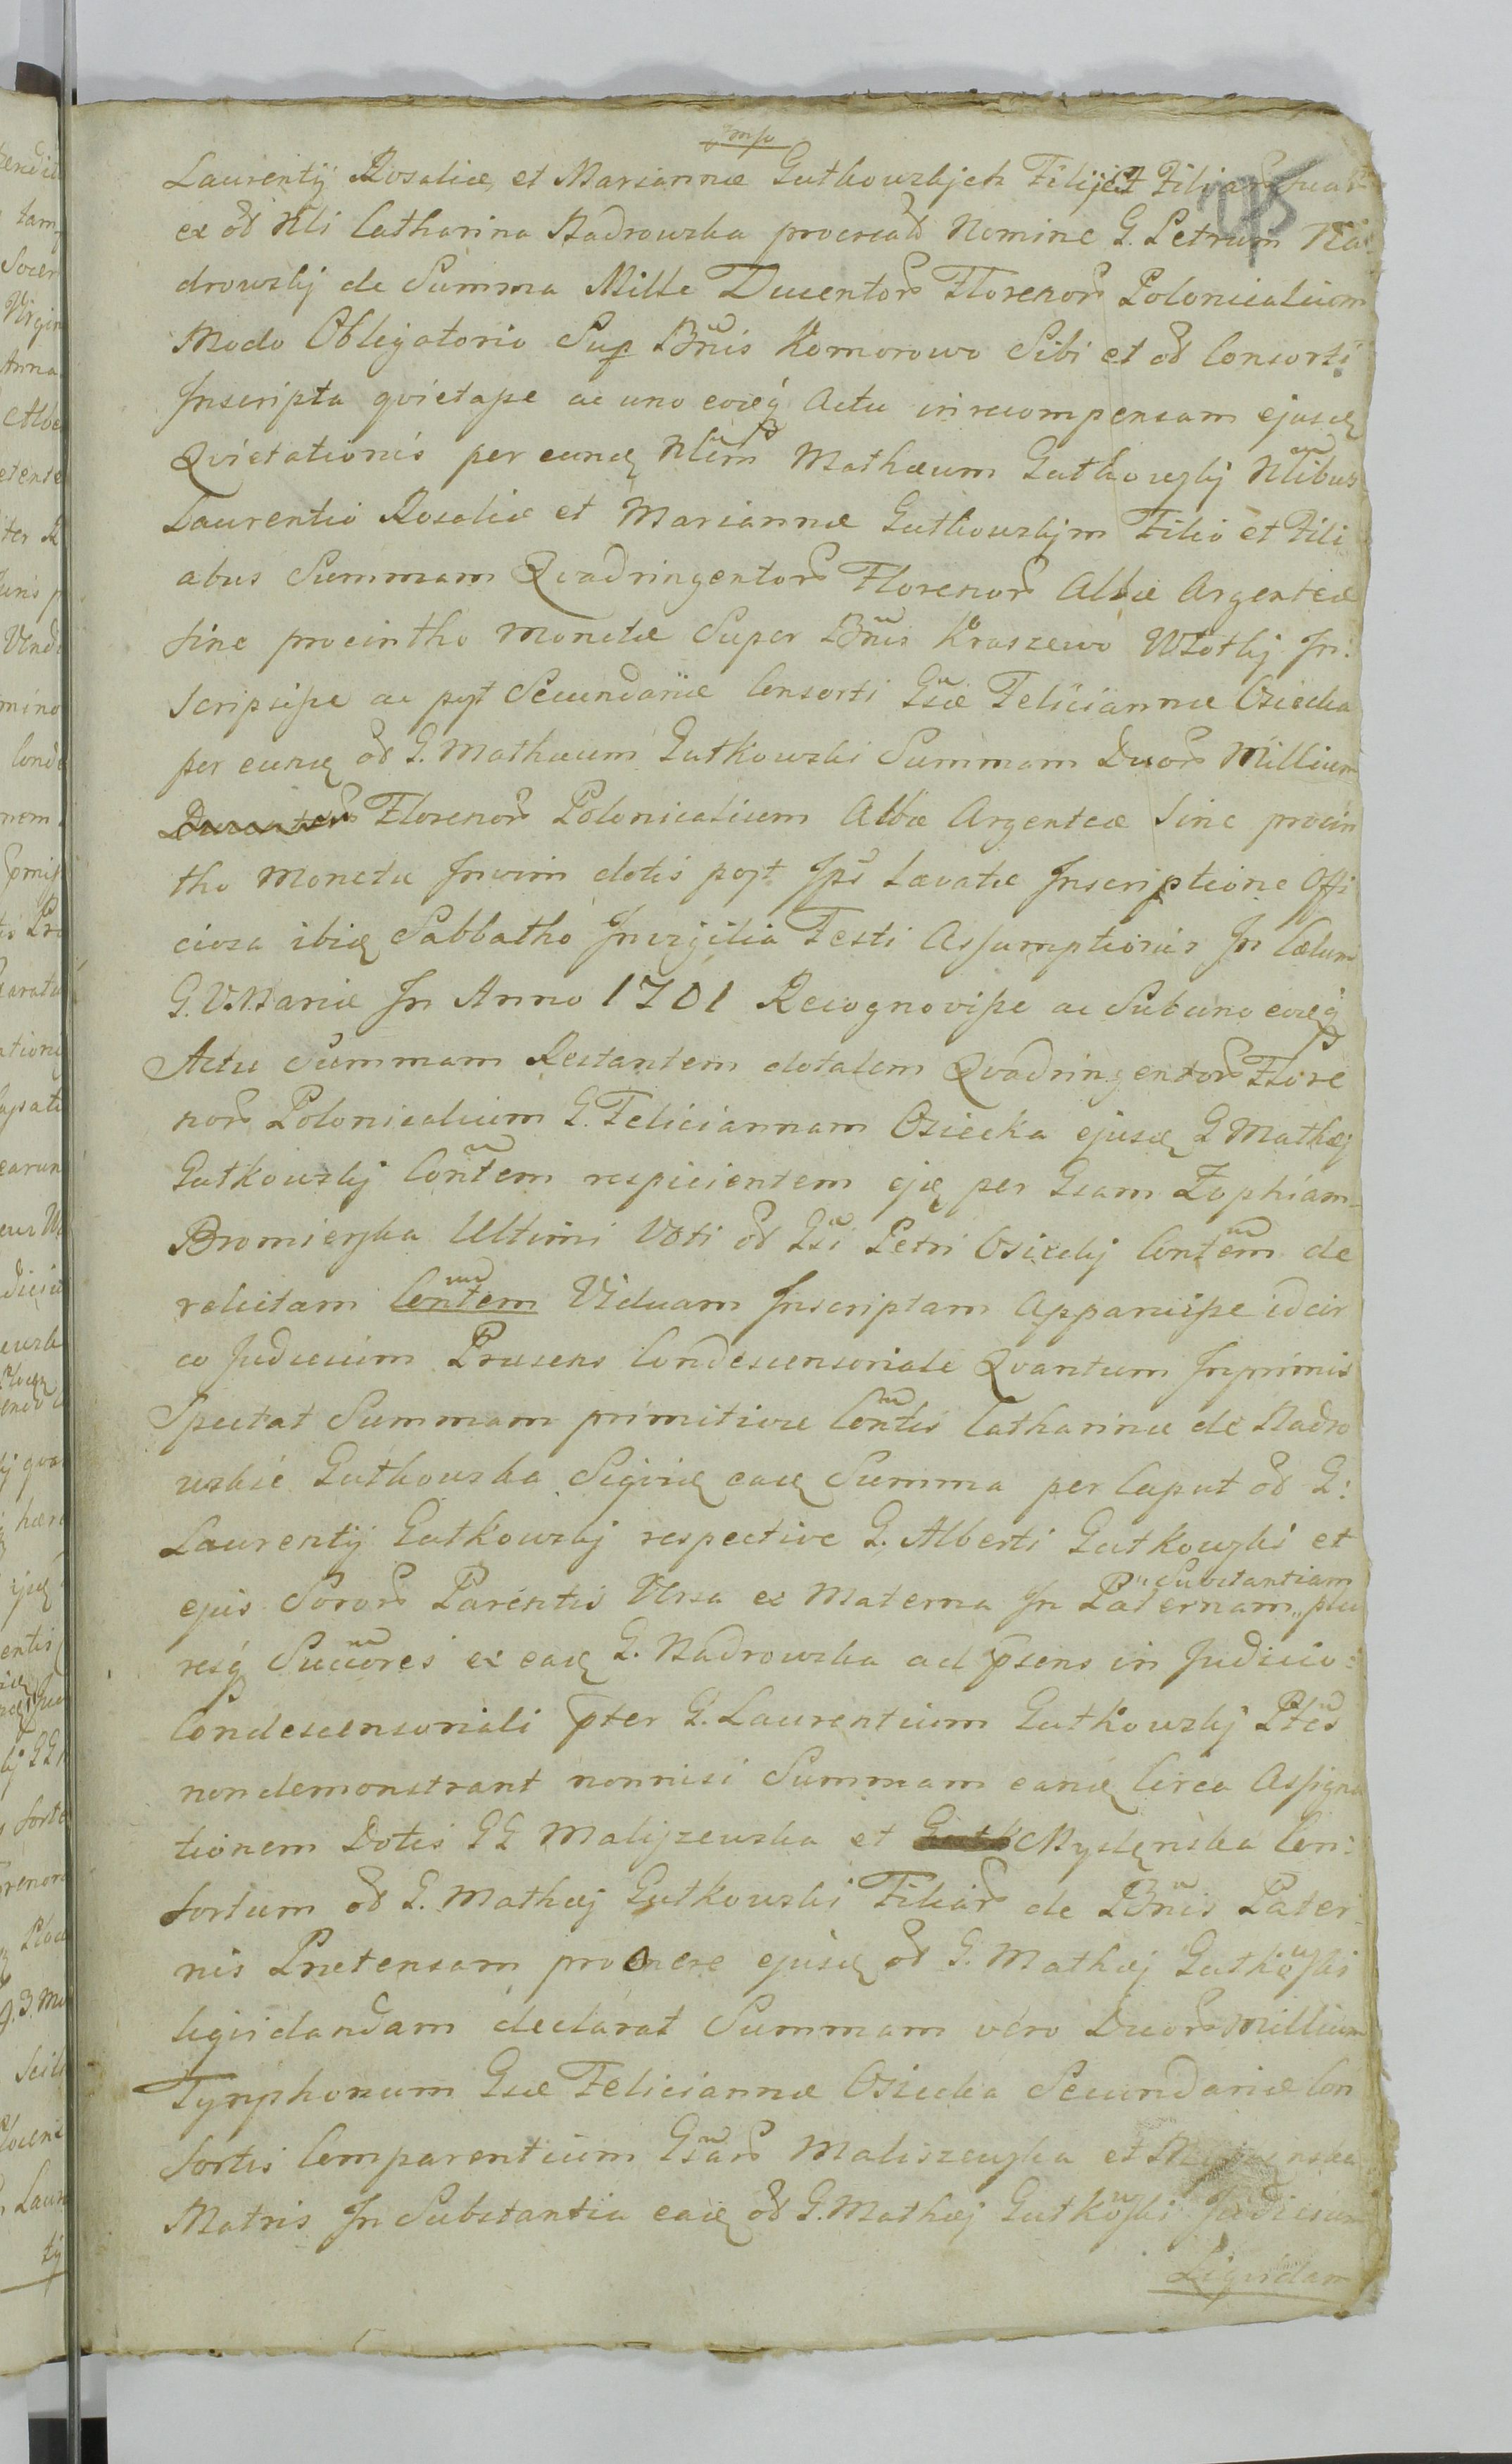 mp
Laurentij Rosaliæ et Mariannæ Gutkowskich Filij et Filiar
ex od Nli Catharina Nadrowska procreatᵒ Nomine G. Petrum Na
drowskj de Summa Mille Ducentorᵒ Florenorᵒ Polonicalium
Modo Obligatorio Sup Bnis Komorowo Sibi et od Consorti
Inscripta qvietasse ac uno eodeq Actu in recompensam ejusdę
Qvietationis per eundę Nlem Mathæum Gutkowskj Nlibus
Laurentio Rosaliæ et Mariannæ Gutkowskjm Filio et Fili
abus Summam Qvadringentorᵒ Florenorᵒ Albæ Argenteæ
sine procintho Monetæ Super Bnis Kraszewo Witotkj In:
scripsisse ac post Secundariæ Consorti Gsæ Feliciannæ Osiecka
per eundę od G. Mathæum Gutkowski Summam Duorᵒ Millium
Florenorᵒ Polonicalium Albæ Argenteæ Sine procin
tho Monetæ In vim dotis post Ips Levatæ Inscriptione Offi
ciosa ibidę Sabbatho In vigilia Festi Assumptionis In Cælum
G. V. Mariæ In Anno 1701 Recognovisse ac Sub uno eodeq
Actu Summam Restantem dotalem Qvadringentorᵒ Flore
norᵒ Polonicalium G. Feliciannam Osiecka ejusdę G Mathæj
Gutkowskj Contem respicientem ejdę per Gsam Zophiam
Bromierska Ultimi Voti od Gsi Petri Osieckj Contem de
relictam Contem Viduam Inscriptam Apparuisse idcir
co Judicium Præsens Condescensoriale Qvantum Inprimis
Spectat Summam primitivæ Contis Catharinæ de Nadro
wskie Gutkowska Siqvidę eadę Summa per Caput od G:
Laurentij Gutkowskj respective G. Alberti Gutkowski et
ejus Sororᵒ Parentis Versa ex Materna In Paternam Substantiam plu
resq Succores ex eadę G. Nadrowska ad psens in Judicio
Condescensoriali pter G. Laurentium Gutkowskj Ptes
non demonstrant nonnisi Summam eandę Circa Assigna
tionem Dotis GG Malijzewska et Myslęnska Con:
sortum od G. Mathæj Gutkowski Filiarᵒ de Bnis Pater
nis Prætensam pro onere ejusdę od G. Mathæj Gutkoski
liqvidandam declarat Summam vero Duorᵒ Millium
Tynphonum Gsæ Feliciannæ Osiecka Secundariæ Con
sortis Comparentium Gsarᵒ Maliszewska et
Matris In Substantia eadę od G. Mathæj Gutkoski Judicium
Liqvidam